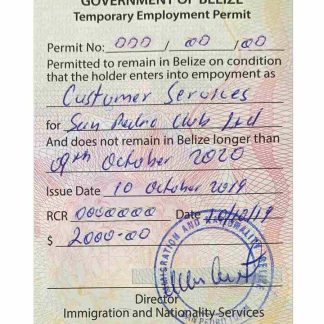 GOVERNMENT OF BELIZE
Temporary Employment Permit
Permit No: 000 / 00 / 00
Permitted to remain in Belize on condition
that the holder enters into empoyment as
Customer Services
for San Pedro Club Ltd
And does not remain in Belize longer than
09th October 2020
Issue Date 10 October 2019
RCR 0000000 Date 10/10/19
$ 2000-00
IMMIGRATION AND NATIONALITY
Director
Immigration and Nationality Services